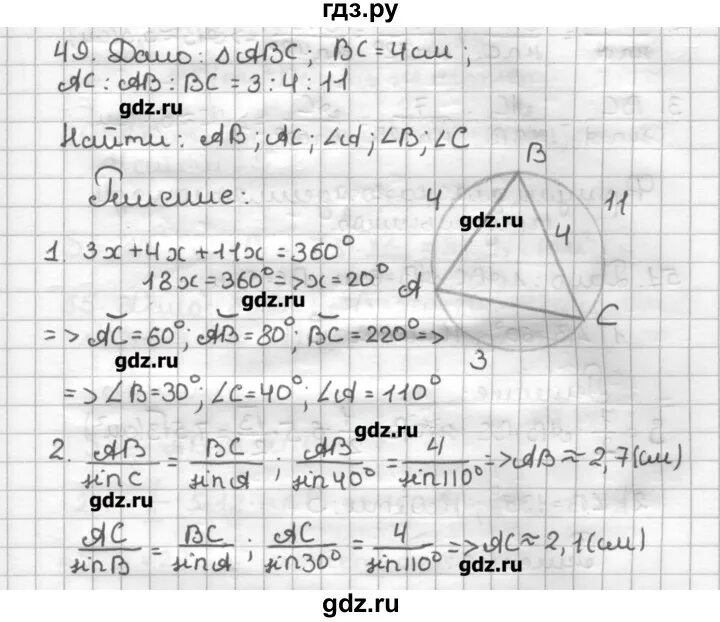 гдз.ру
49. Дано: ΔABC; BC = 4см;
AC : AB : BC = 3 : 4 : 11
gdz.ru
Найти: AB; AC; ∠A; ∠B; ∠C
Решение:
B
4
gdz.ru
11
4
1. 3x + 4x + 11x = 360°
18x = 360° => x = 20°
A
gdz.ru
C
=> ◡AC = 60°; ◡AB = 80°; ◡BC = 220° =>
gdz.ru
3
=> ∠B = 30°; ∠C = 40°; ∠A = 110°
gdz.ru
2. AB/sinC = BC/sinA; AB/sin40° = 4/sin110° => AB ≈ 2,7(см)
gdz.ru
AC/sinB = BC/sinA; AC/sin30° = 4/sin110° => AC ≈ 2,1(см)
gdz.ru
gdz.ru